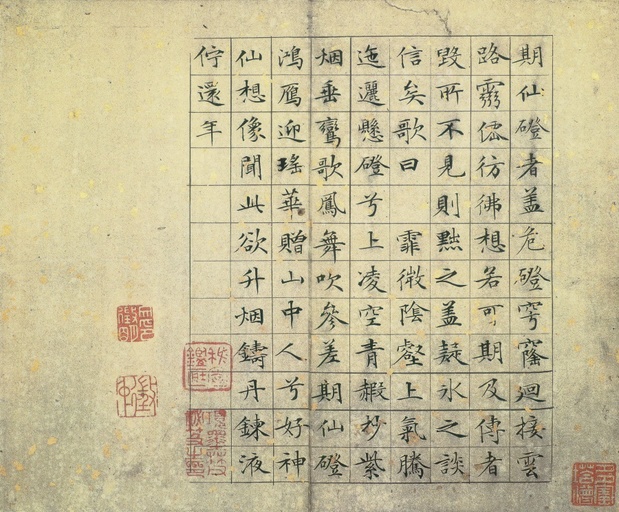 期仙磴者盖危磴穹窿迴接雲
路靈僊彷彿想若可期及傳者
毀所不見則黙之盖疑氷之談
信矣歌曰 霏微陰壑上氣騰
迤邐懸磴兮上凌空青赮杪紫
烟垂鸞歌鳳舞吹參差期仙磴
鴻鴈迎瑤華贈山中人兮好神
仙想像聞此欲升烟鑄丹鍊液
佇還年